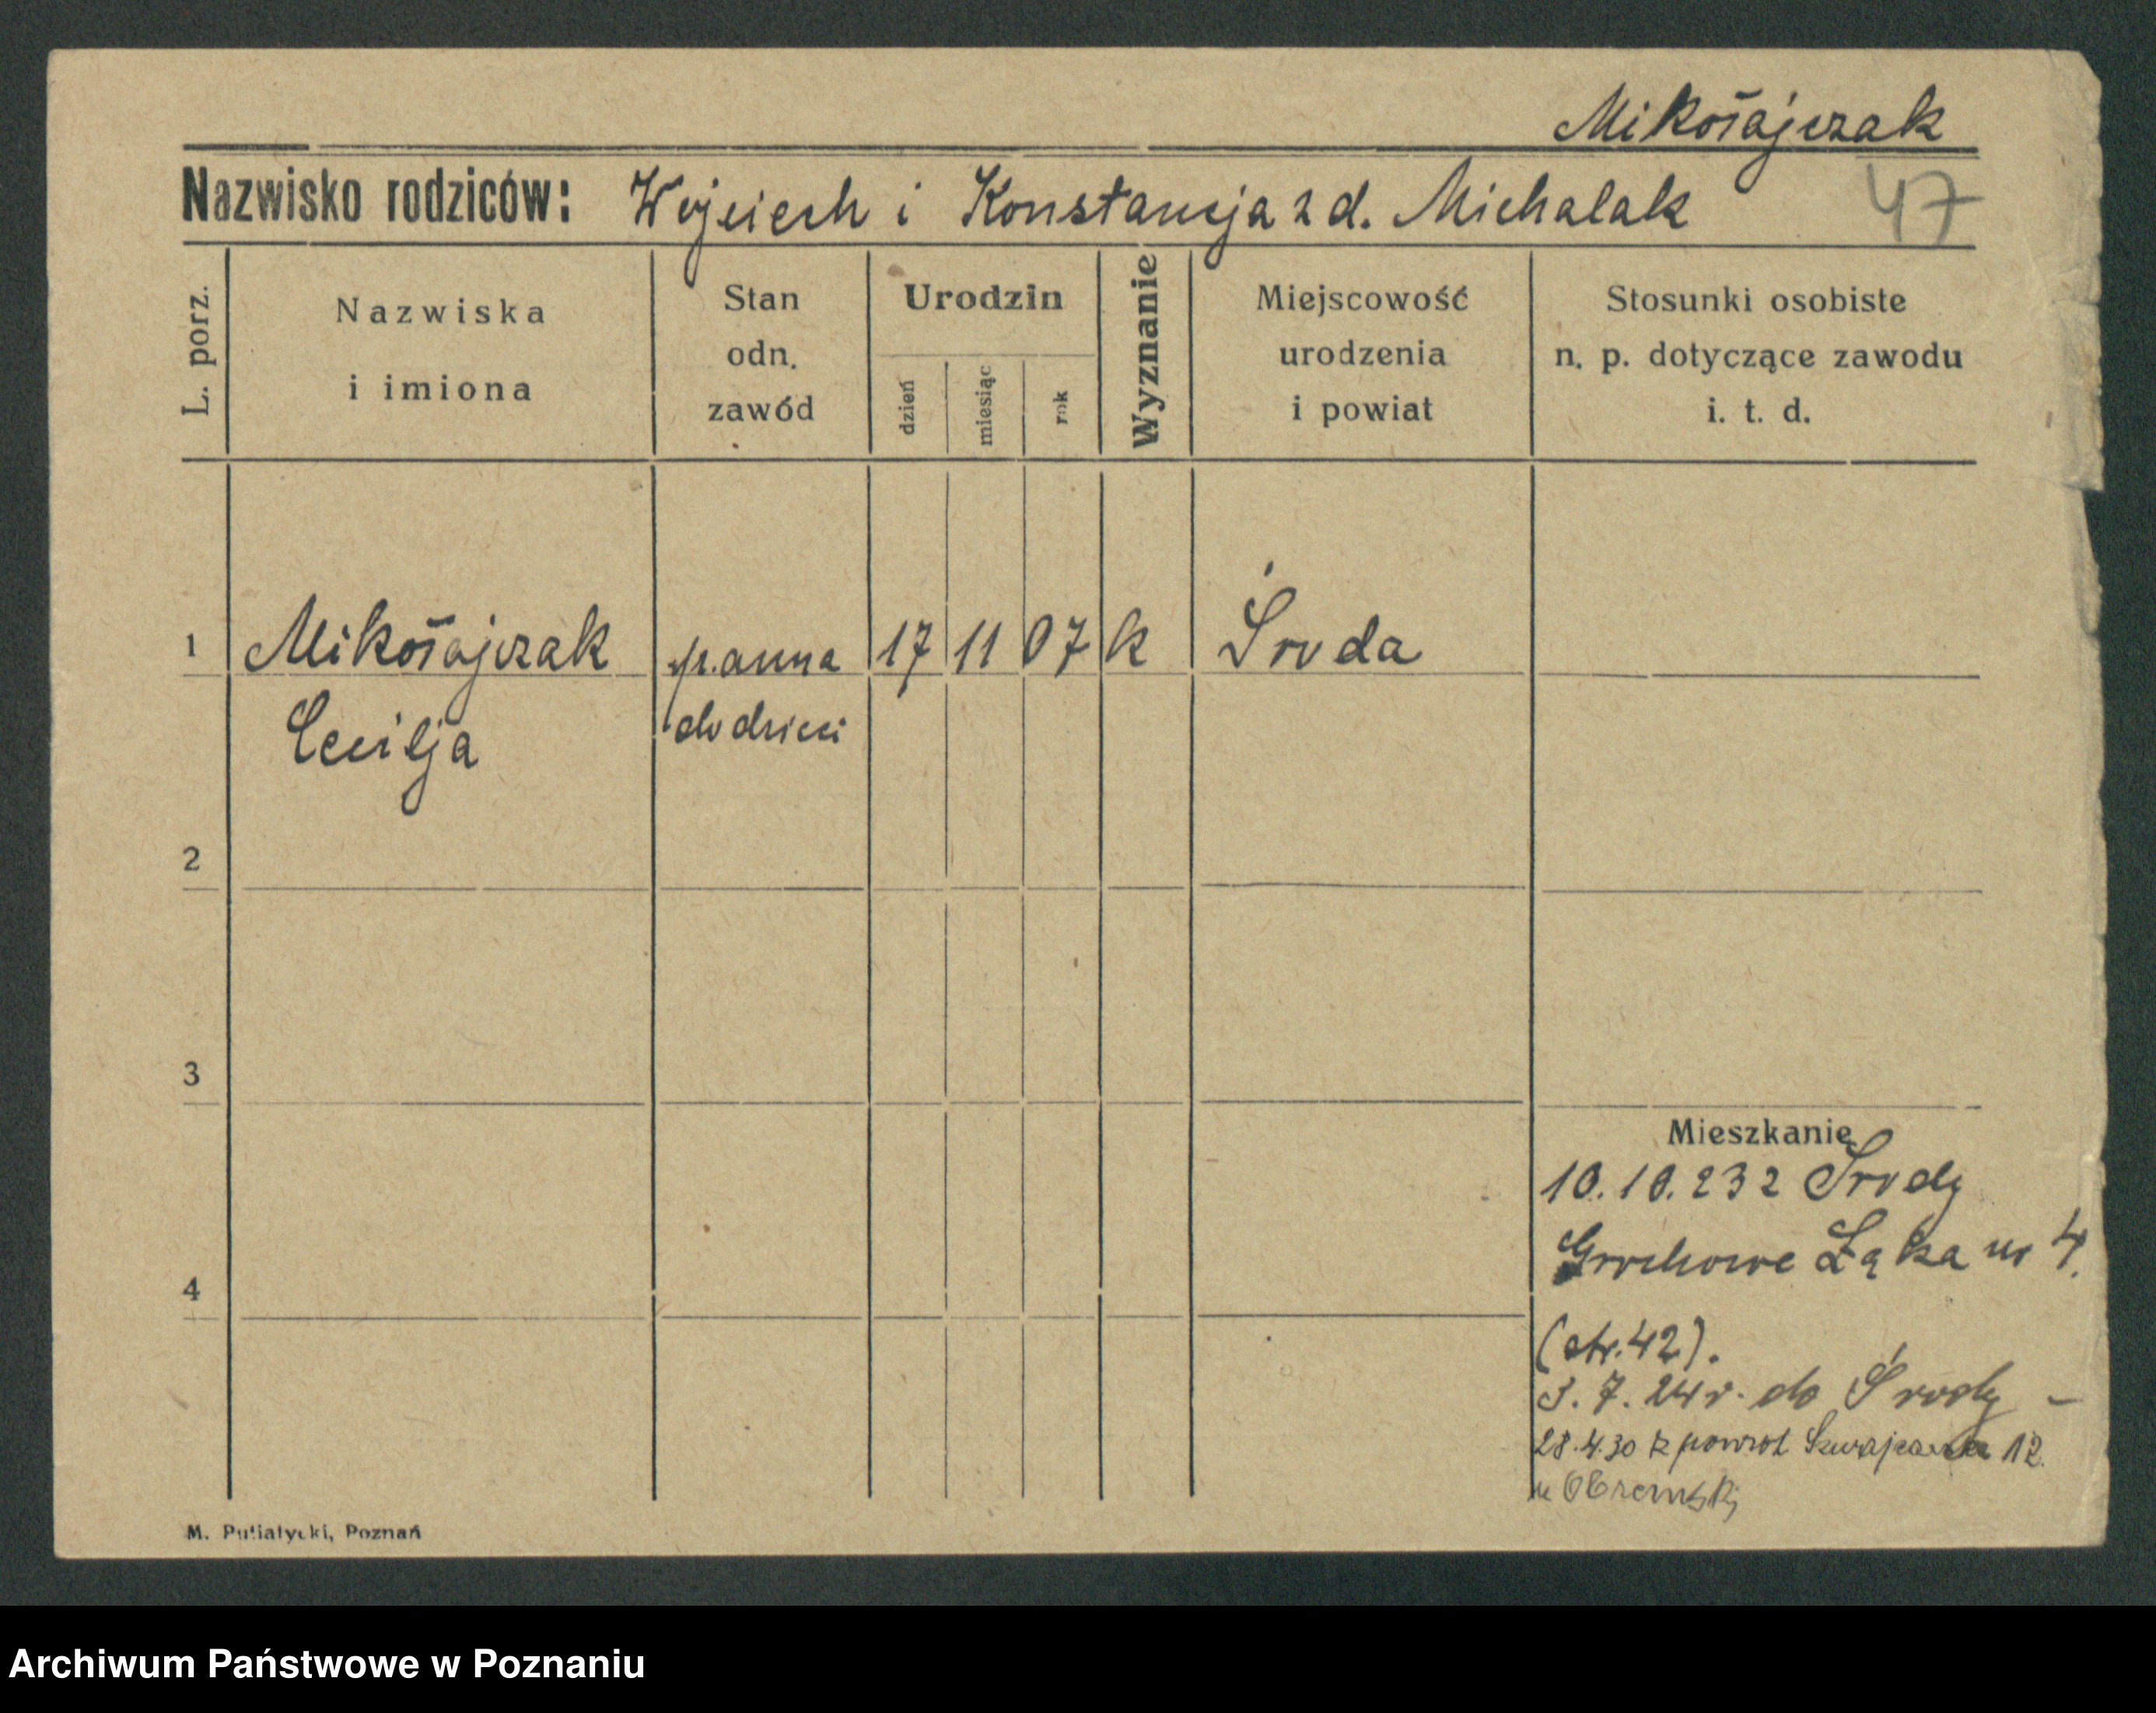 Mikołajczak
Nazwisko rodziców: Wojciech i Konstancja z d. Michalak 47
L. porz.
Nazwiska
i imiona
Stan
odn.
zawód
Urodzin
dzień
miesiąc
rok
Wyznanie
Miejscowość
urodzenia
i powiat
Stosunki osobiste
n. p. dotyczące zawodu
i. t. d.
1 Mikołajczak panna 17 11 07 k Środa
Cecilja do dzieci
2
3
4
Mieszkanie
10.10.23 z Środy
Grochowe Łąka nr 4.
(str. 42).
3. 7. 24 r. do Środy –
28.4.30 z powrot 12.
u
M. Putiatycki, Poznań
Archiwum Państwowe w Poznaniu